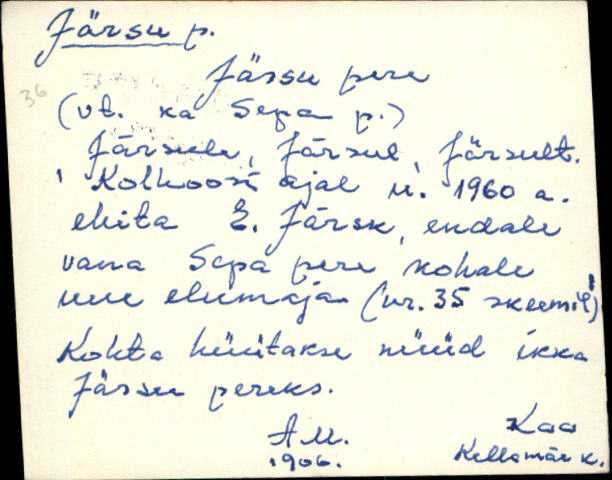 Järsu p.
Jässu pere
36
(vt. ka Sepa p.)
Järsule, Järsul, Järsult.
Kolhoosi ajal u. 1960 a.
ehita E. Järsk, endale
vana Sepa pere kohale
uue elumaja (nr. 35 skeemil)
Kohta hüütakse nüüd ikka
Jässu pereks.
A.M. Kaa
1906. Kellamäe k.